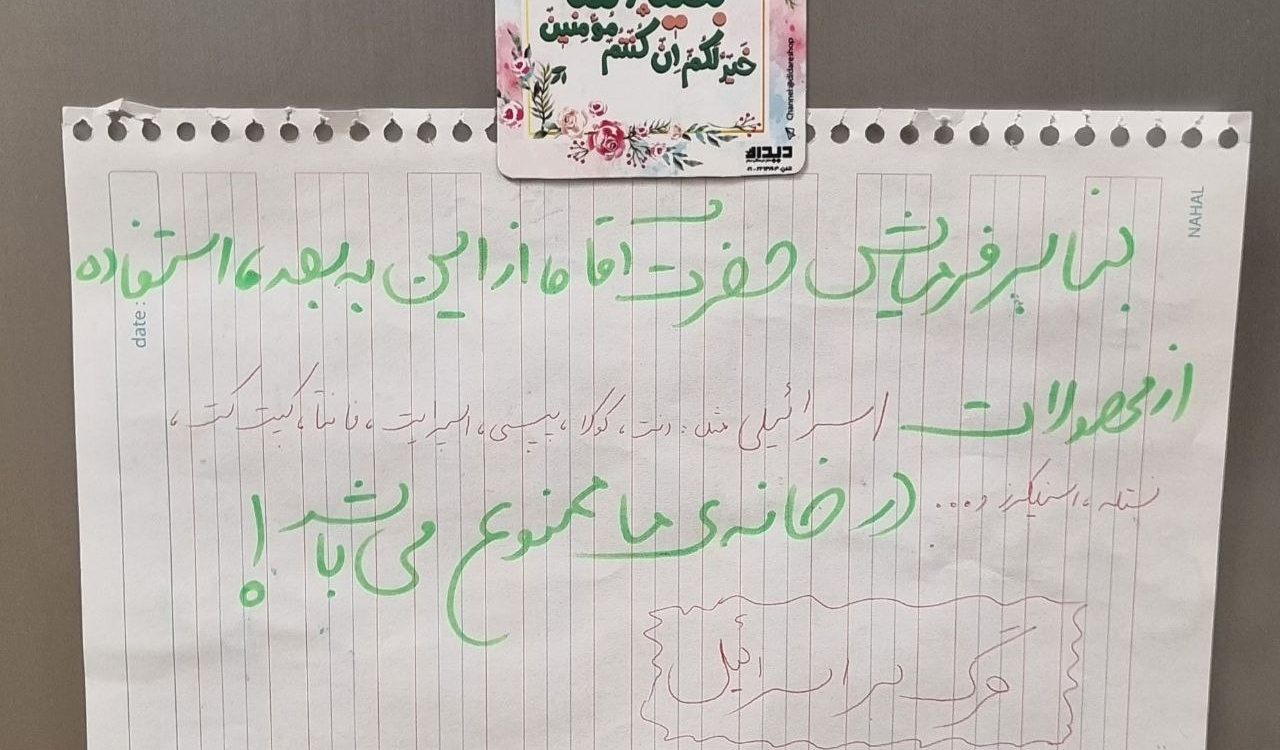 بقیة الله
خیر لکم ان کنتم مؤمنین
Channel:@didareshop
دیدار
NAHAL
date:
بنا بر فرمایش حضرت آقا ما از این به بعد ما استفاده
از محصولات اسرائیلی مثل: دنت، کوکا، پپسی، اسپرایت، فانتا، کیت کت،
نستله، اسنیکرز و... در خانه‌ی ما ممنوع می باشد!
مرگ بر اسرائیل